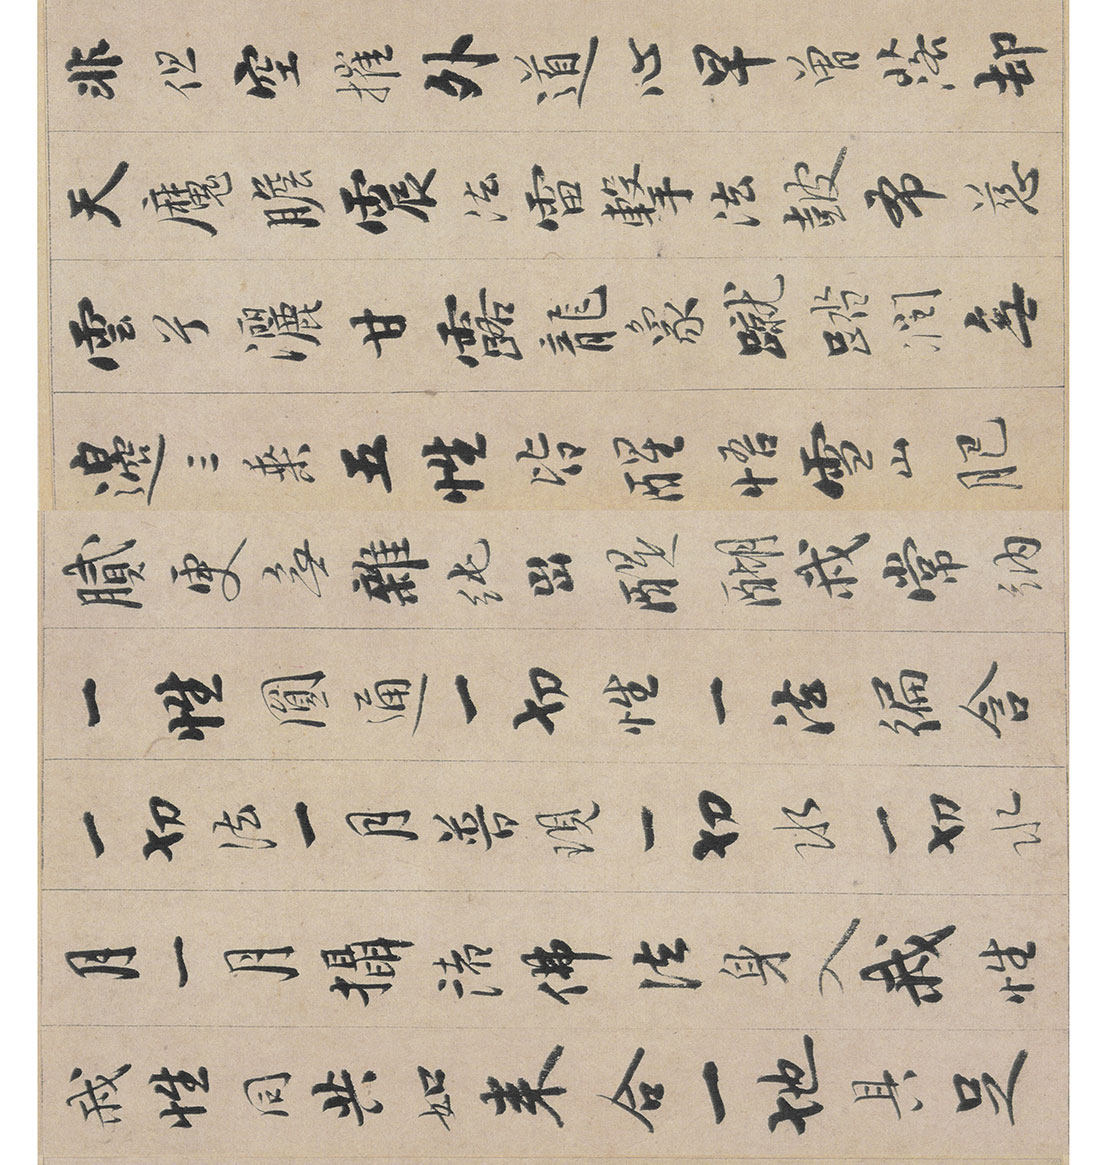 非但空摧外道心早曾落却
天魔膽震法雷擊法鼓布慈
雲兮灑甘露龍象蹴踏潤無
邊三乘五性皆醒悟雪山肥
膩更無雜純出醍醐我常納
一性圓通一切性一法徧含
一切法一月普現一切水一切水
月一月攝諸佛法身入我性
我性同共如來合一地具足